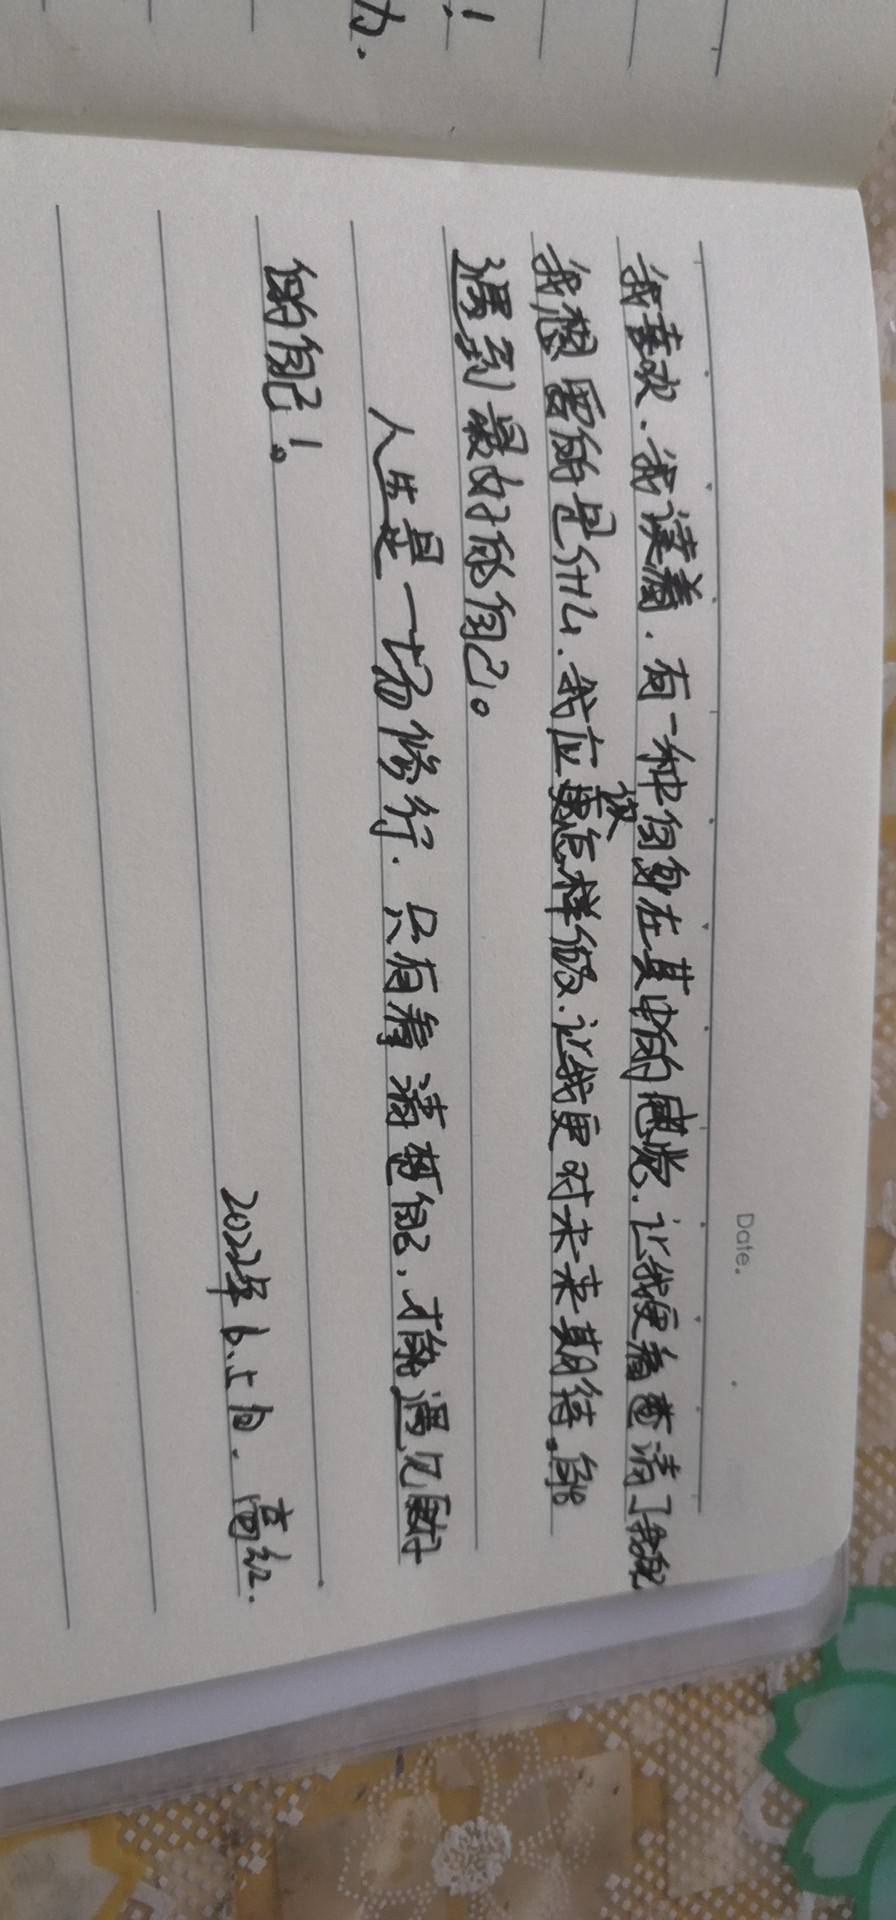 力.
!
Date.
我喜欢、我读着、有一种自身在其中的感觉、让我更看清了我
我想要的是什么、我应该怎样做、让我更对未来期待。能
遇到最好的自己。
人生是一场修行、只有看清楚自己、才能遇见更好
的自己!。
2022年6.5日. 高红.